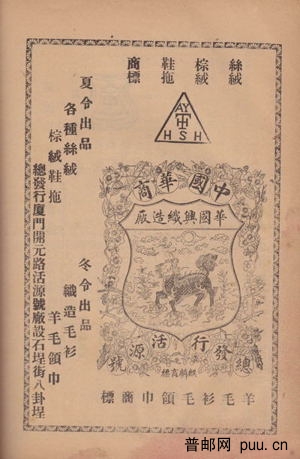 絲絨
棕絨
鞋拖
商標
AY
中
HSH
中國華商
華國興織造廠
總發行活源號
麒麟商標
羊毛衫毛領巾商標
夏令出品
各種絲絨
棕絨鞋拖
冬令出品
織造毛衫
羊毛領巾
總發行廈門開元路活源號廠設石埕街八卦埕
普邮网 puu.cn